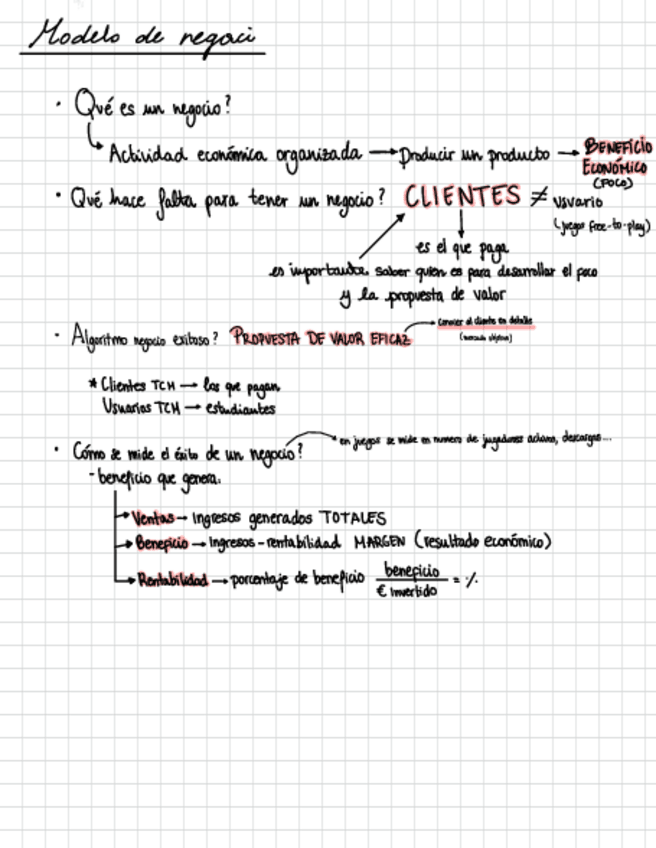 Modelo de negoci
· Qué es un negocio?
Actividad económica organizada → Producir un producto → BENEFICIO
ECONÓMICO
(FOCO)
· Qué hace falta para tener un negocio? CLIENTES ≠ usuario
(juegos free-to-play)
es el que paga
es importante saber quien es para desarrollar el foco
y la propuesta de valor
· Algoritmo negocio exitoso? PROPUESTA DE VALOR EFICAZ → conocer al cliente en detalle
(mercado objetivo)
* Clientes TCH → los que pagan
Usuarios TCH → estudiantes
· Cómo se mide el éxito de un negocio? → en juegos se mide en numero de jugadores activos, descargas...
- beneficio que genera.
→ Ventas → Ingresos generados TOTALES
→ Beneficio → Ingresos - rentabilidad MARGEN (resultado económico)
→ Rentabilidad → porcentaje de beneficio beneficio / € invertido = %